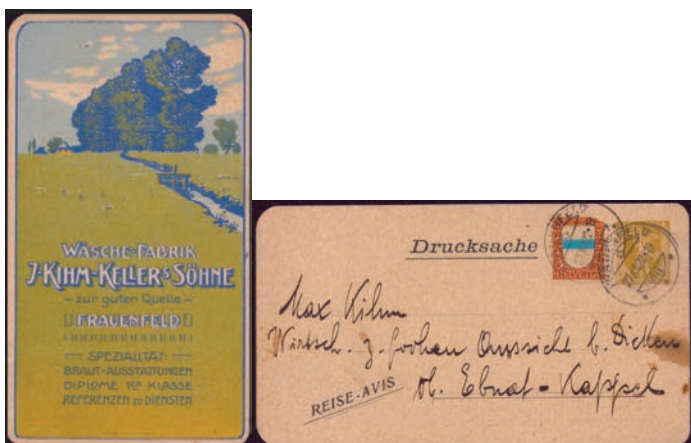 WÄSCHE-FABRIK
J. KIHM-KELLER'S SÖHNE
- zur guten Quelle -
FRAUENFELD
SPEZIALITÄT
BRAUT-AUSSTATTUNGEN
DIPLOME 1ER KLASSE
REFERENZEN ZU DIENSTEN
Drucksache
HELVETIA
FRAUENFELD
Max Kihm
Wirtsch. z. frohen Aussicht b. Dicken
ob. Ebnat-Kappel
REISE-AVIS